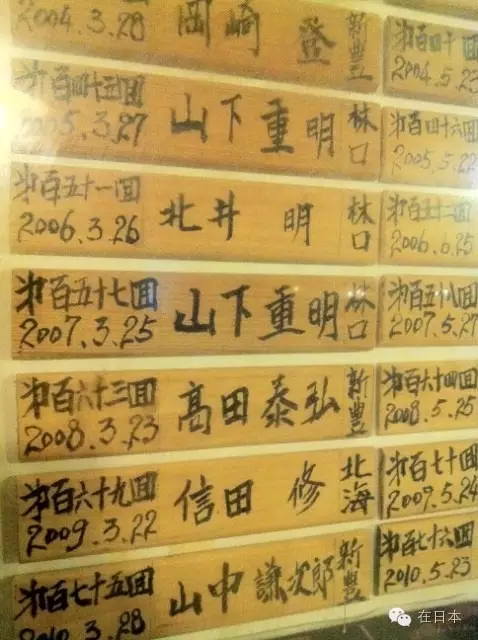 2004.3.28 岡崎 登 新豊
㐧百四十回
2004.5.23
㐧百四十五回
2005.3.27
山下重明 林口
㐧百四十六回
2005.5.22
㐧百五十一回
2006.3.26
北井 明 林口
㐧百五十二回
2006.6.25
㐧百五十七回
2007.3.25
山下重明 林口
㐧百五十八回
2007.5.27
㐧百六十三回
2008.3.23
高田泰弘 新豊
㐧百六十四回
2008.5.25
㐧百六十九回
2009.3.22
信田 修 北海
㐧百七十回
2009.5.24
㐧百七十五回
2010.3.28
山中謙次郎 新豊
㐧百七十六回
2010.5.23
在日本